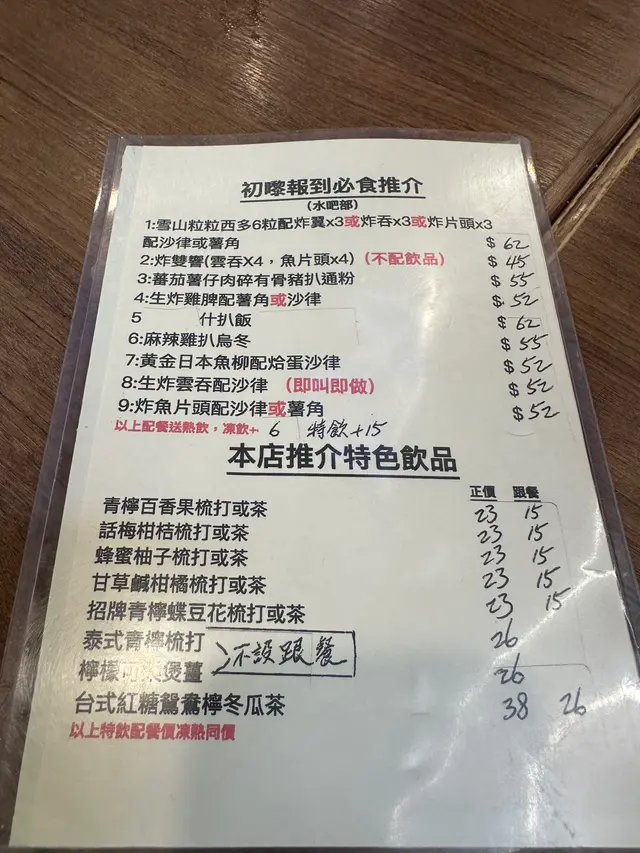 初嚟報到必食推介
(水吧部)
1:雪山粒粒西多6粒配炸翼x3或炸吞x3或炸片頭x3
配沙律或薯角 $62
2:炸雙響(雲吞X4，魚片頭x4)（不配飲品） $45
3:蕃茄薯仔肉碎有骨豬扒通粉 $55
4:生炸雞脾配薯角或沙律 $52
5 什扒飯 $62
6:麻辣雞扒烏冬 $55
7:黃金日本魚柳配烚蛋沙律 $52
8:生炸雲吞配沙律 （即叫即做） $52
9:炸魚片頭配沙律或薯角 $52
以上配餐送熱飲，凍飲+6 特飲+15
本店推介特色飲品
正價 跟餐
青檸百香果梳打或茶 23 15
話梅柑桔梳打或茶 23 15
蜂蜜柚子梳打或茶 23 15
甘草鹹柑橘梳打或茶 23 15
招牌青檸蝶豆花梳打或茶 23 15
泰式青檸梳打 26
不設跟餐
檸檬可樂煲薑 26
台式紅糖鴛鴦檸冬瓜茶 38 26
以上特飲配餐價凍熱同價